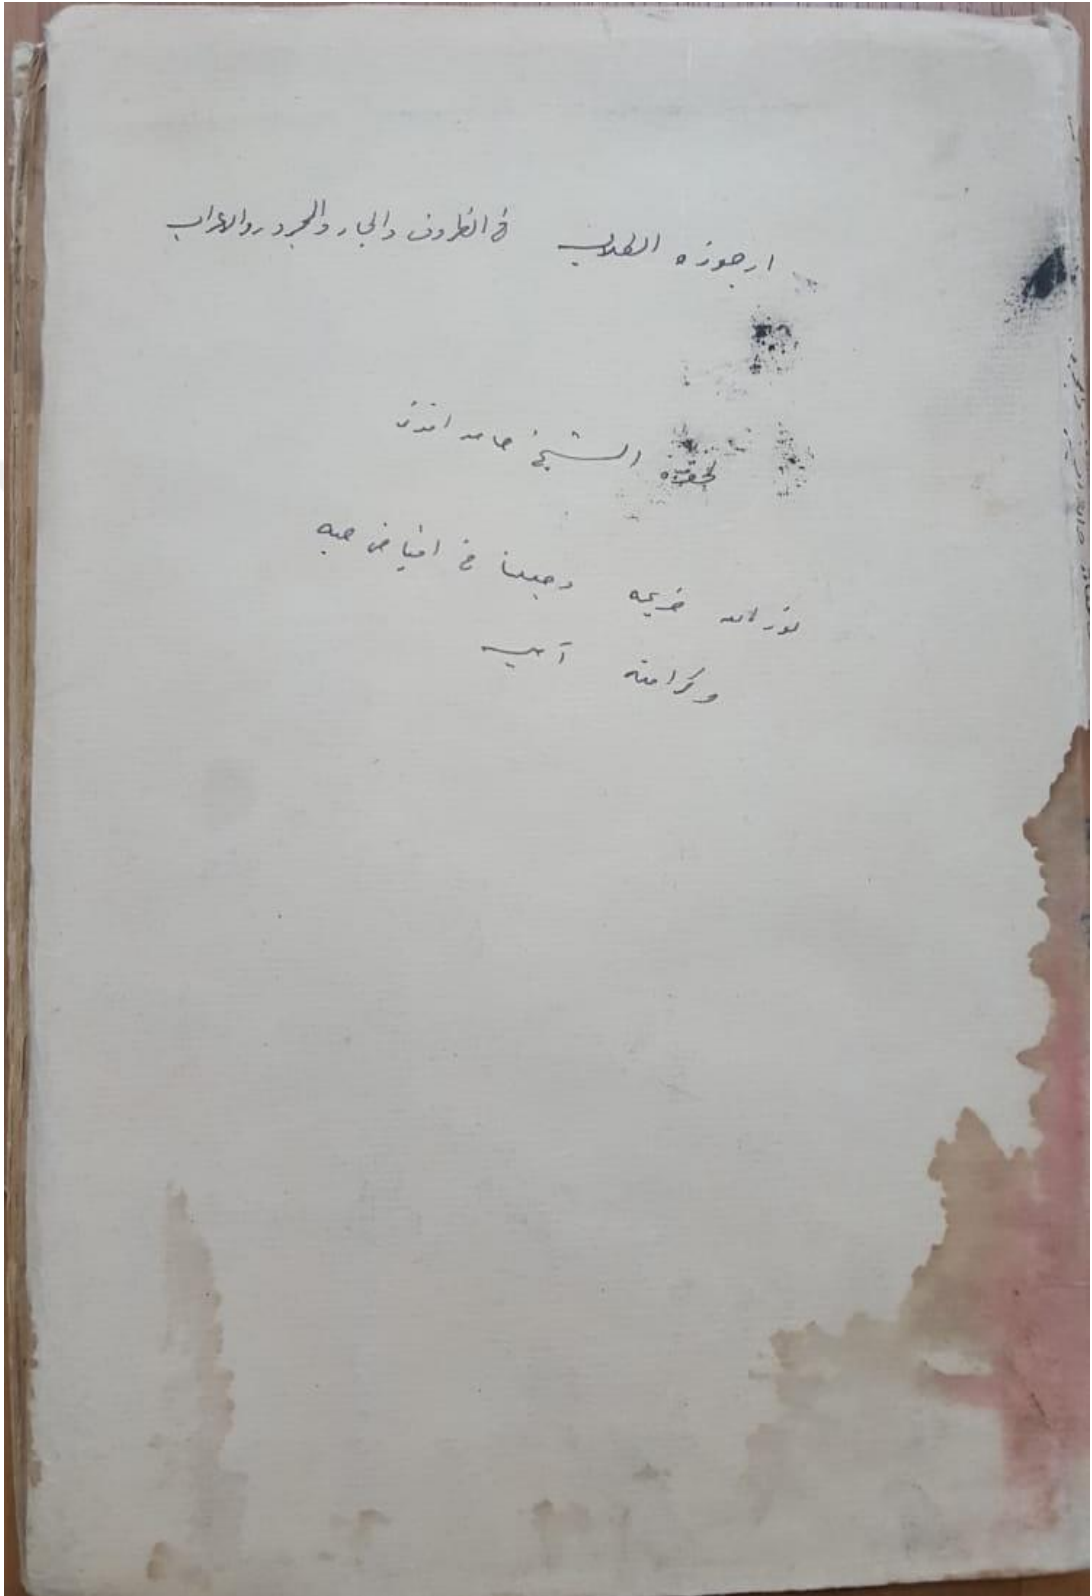 ارجوزه الطلاب في الظروف والجار والمجرور والاعراب
لحضرة الشيخ حامد افندى
نور الله ضريحه وجعلنا في افياض حبه
وكرامته آمين